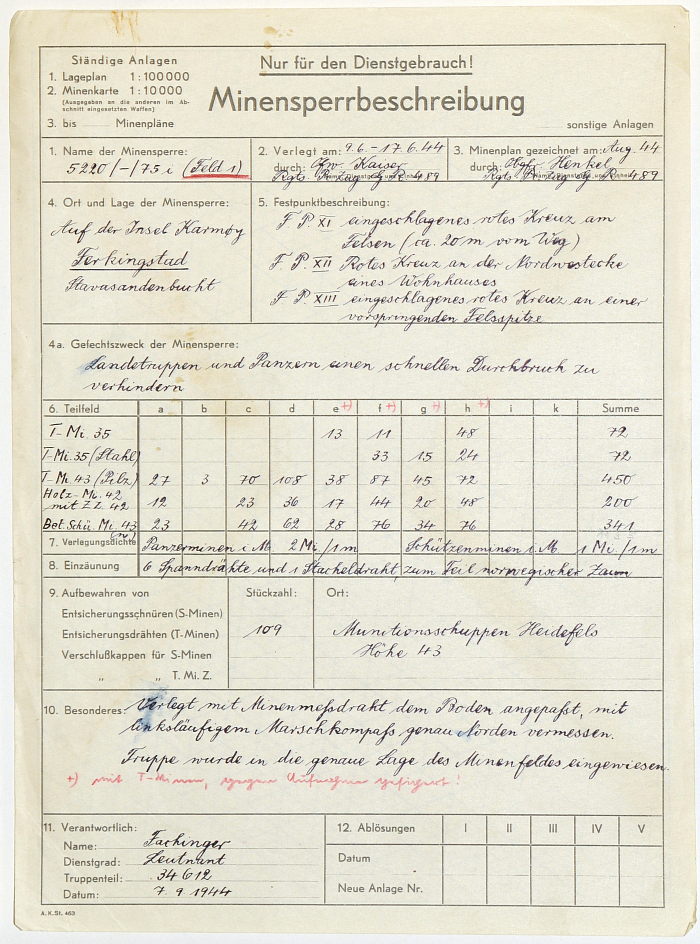 Ständige Anlagen
1. Lageplan 1:100000
2. Minenkarte 1:10000
(Ausgegeben an die anderen im Ab-
schnitt eingesetzten Waffen)
3. bis Minenpläne
Nur für den Dienstgebrauch!
Minensperrbeschreibung
sonstige Anlagen
1. Name der Minensperre:
5220/-/75 i (Feld 1)
2. Verlegt am: 9.6. - 17.6.44
durch: Kaiser
R 489
3. Minenplan gezeichnet am: Aug. 44
durch: Obgfr. Henkel
R 489
4. Ort und Lage der Minensperre:
Auf der Insel Karmøy
Ferkingstad
Stavasandenbucht
5. Festpunktbeschreibung:
F. P. XI eingeschlagenes rotes Kreuz am
Felsen (ca. 20 m vom Weg)
F. P. XII Rotes Kreuz an der Nordwestecke
eines Wohnhauses
F. P. XIII eingeschlagenes rotes Kreuz an einer
vorspringenden Felsspitze
4a. Gefechtszweck der Minensperre:
Landetruppen und Panzern einen schnellen Durchbruch zu
verhindern
6. Teilfeld a b c d e +) f +) g +) h +) i k Summe
T-Mi. 35 13 11 48 72
T-Mi. 35 (Stahl) 33 15 24 72
T-Mi. 43 (Pilz) 27 3 70 108 38 87 45 72 450
Holz-Mi. 42
mit Z.Z. 42 12 23 36 17 44 20 48 200
Bet. Schü. Mi. 43 (n) 23 42 62 28 76 34 76 341
7. Verlegungsdichte Panzerminen i. M. 2 Mi/1m Schützenminen i. M. 1 Mi/1m
8. Einzäunung 6 Spanndrähte und 1 Stacheldraht, zum Teil norwegischer Zaun
9. Aufbewahren von Stückzahl: Ort:
Entsicherungsschnüren (S-Minen)
Entsicherungsdrähten (T-Minen) 109 Munitionsschuppen Heidefels
Verschlußkappen für S-Minen Höhe 43
„ „ T. Mi. Z.
10. Besonderes: Verlegt mit Minenmeßdraht dem Boden angepaßt, mit
linksläufigem Marschkompaß genau Norden vermessen.
Truppe wurde in die genaue Lage des Minenfeldes eingewiesen.
+) mit T-Minen, gegen Aufnehmen gesichert!
11. Verantwortlich:
Name: Fachinger
Dienstgrad: Leutnant
Truppenteil: 34612
Datum: 7.9.1944
12. Ablösungen I II III IV V
Datum
Neue Anlage Nr.
A.K.St. 463